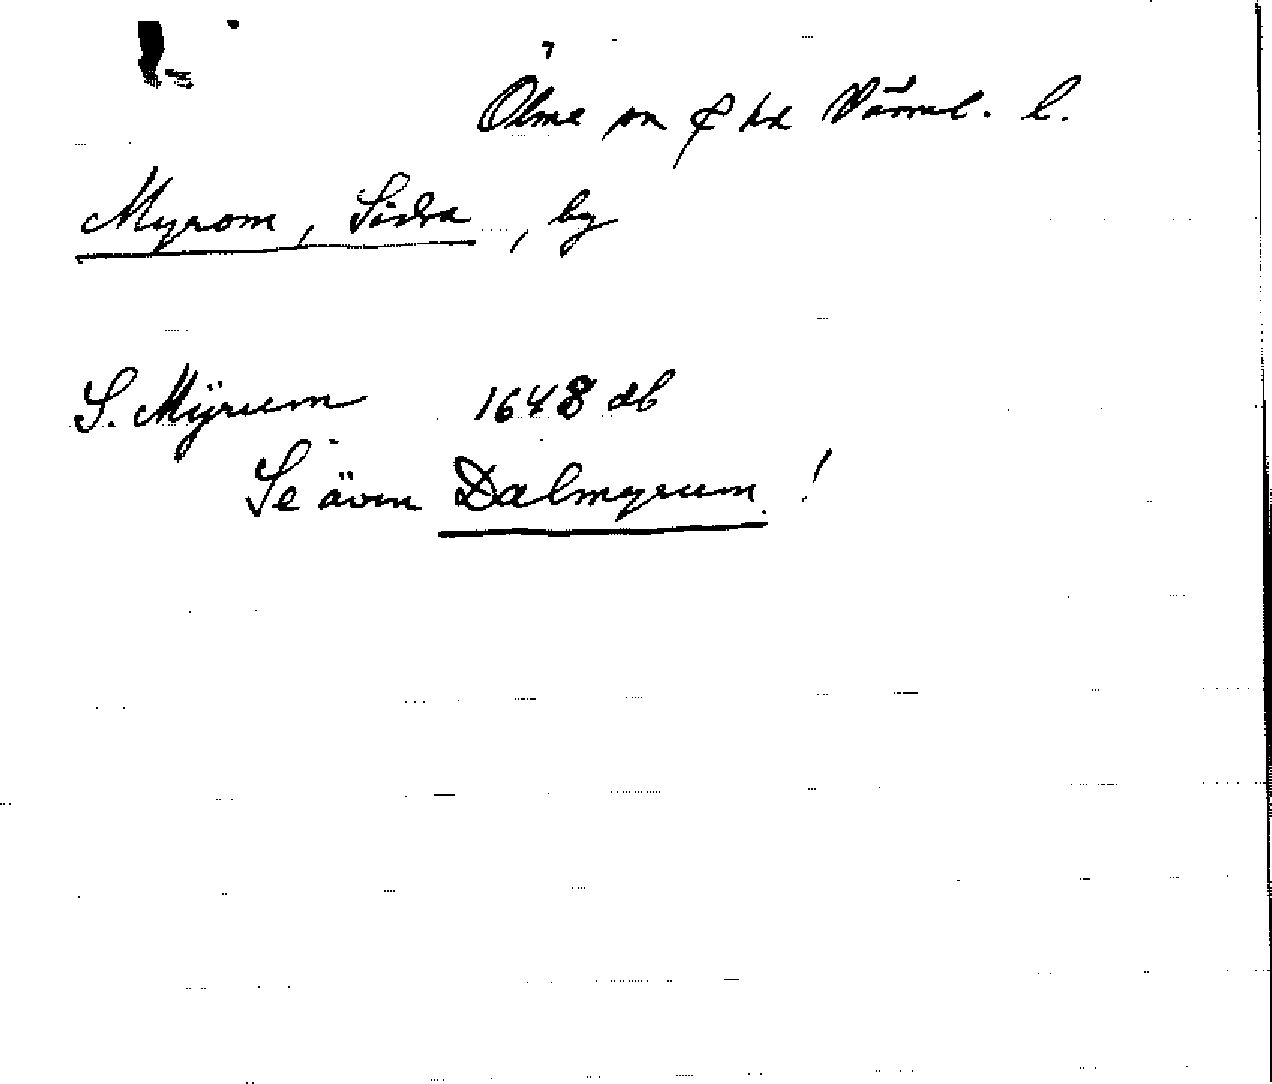 Ölme sn & hd Värml. l.
Myrom, Södra, by
S. Mÿrum 1648 db
Se även Dalmyrum!